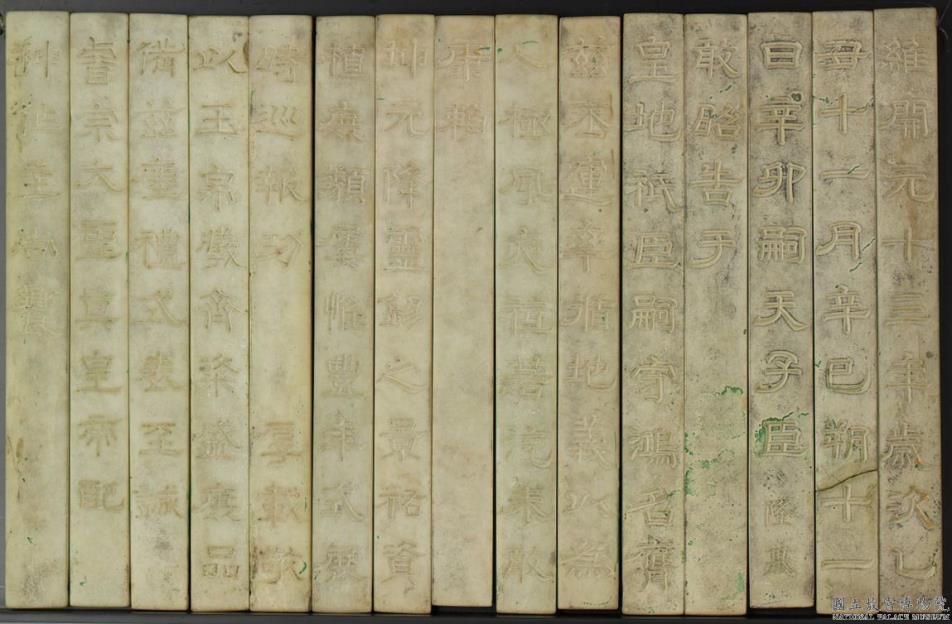 維開元十三年歲次乙
丑十一月辛巳朔十一
日辛卯嗣天子臣隆基
敢昭告于
皇地祇臣嗣守鴻名膺
茲丕運率循地義以為
人極夙夜祗若汔未敢
康賴
坤元降靈錫之景祐資
植庶類屢惟豐年式展
時巡報功厚載敬
以玉帛犧齊粢盛庶品
備茲瘞禮式表至誠
睿宗大聖真皇帝配
神作主尚饗
國立故宮博物院
NATIONAL PALACE MUSEUM